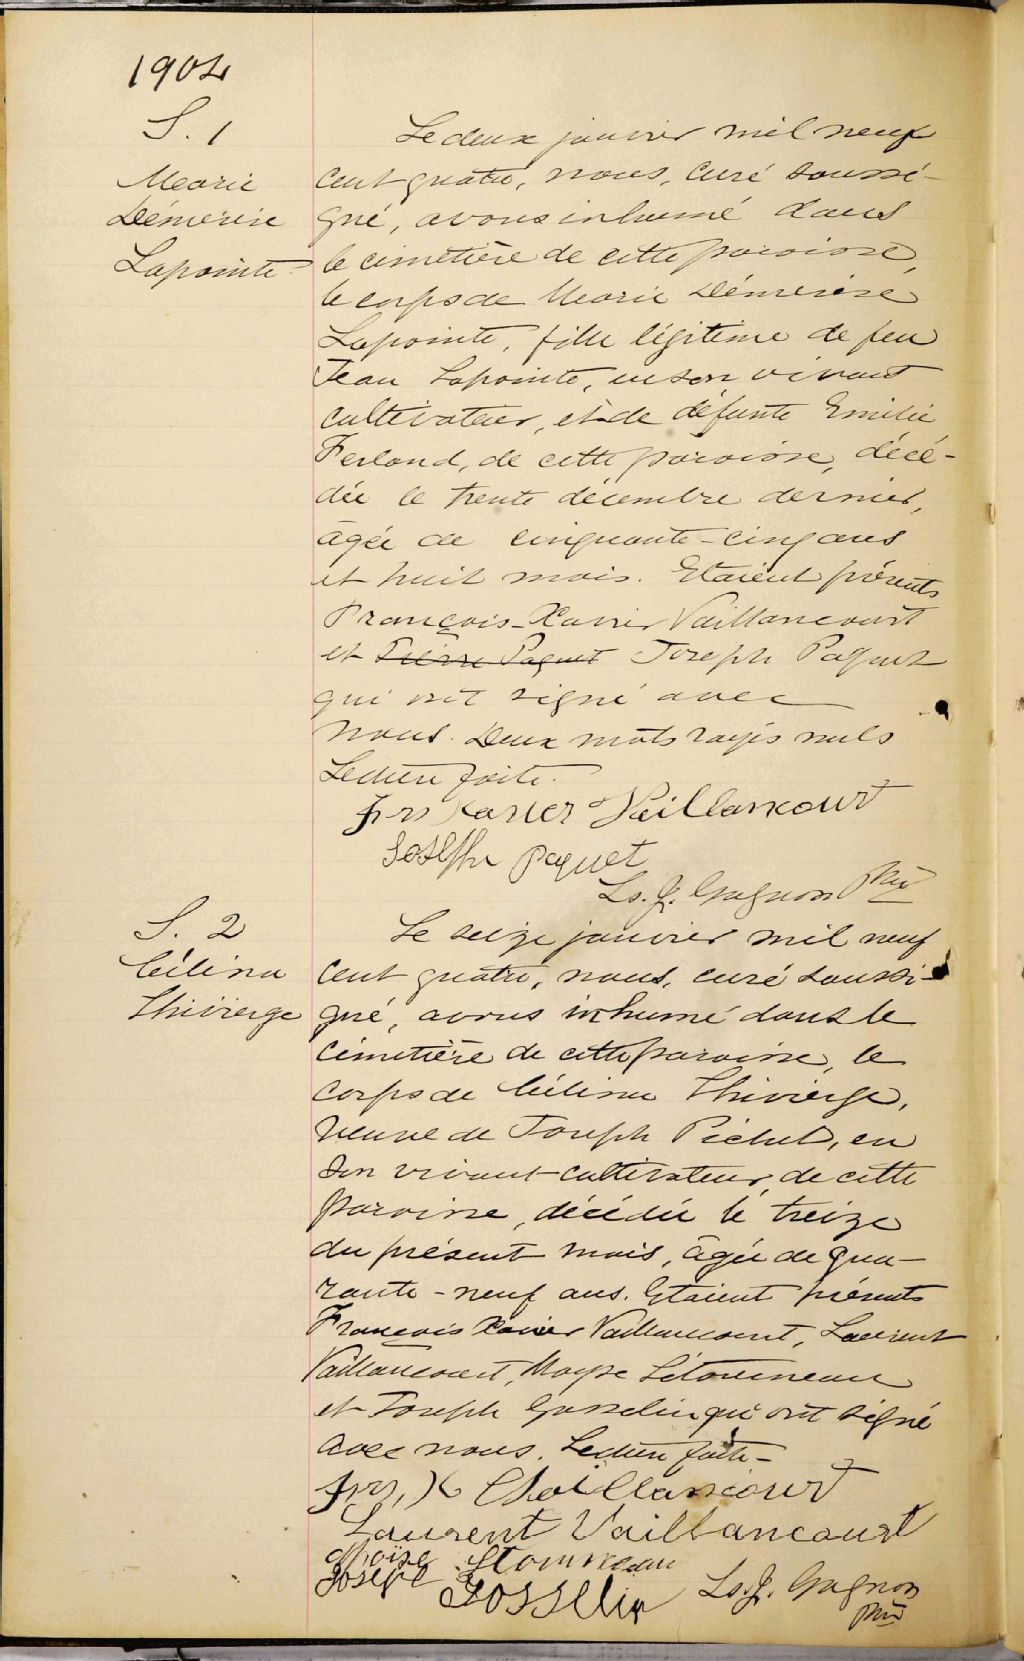 1904
S. 1
Marie
Démerise
Lapointe
Le deux janvier mil neuf
cent quatre, nous, curé soussi-
gné, avons inhumé dans
le cimetière de cette paroisse,
le corps de Marie Démerise
Lapointe, fille légitime de feu
Jean Lapointe, en son vivant
cultivateur, et de défunte Emilie
Ferland, de cette paroisse, décé-
dée le trente décembre dernier,
âgée de cinquante-cinq ans
et huit mois. Etaient présents
François-Xavier Vaillancourt
et Pierre Paquet Joseph Paquet
qui ont signé avec
nous. Deux mots rayés nuls
Lecture faite.
Frs Xavier Vaillancourt
Joseph Paquet
Ls. J. Gagnon Ptre
S. 2
Célina
Thivierge
Le seize janvier mil neuf
cent quatre, nous, curé soussi-
gné, avons inhumé dans le
cimetière de cette paroisse, le
corps de Célina Thivierge,
veuve de Joseph Pichet, en
son vivant cultivateur, de cette
paroisse, décédée le treize
du présent mois, âgée de qua-
rante-neuf ans. Etaient présents
François Xavier Vaillancourt, Laurent
Vaillancourt, Moyse Létourneau
et Joseph Gosselin qui ont signé
avec nous. Lecture faite-
Frs, X Vaillancourt
Laurent Vaillancourt
Moïse Létourneau
Joseph Gosselin
Ls. J. Gagnon
Ptre